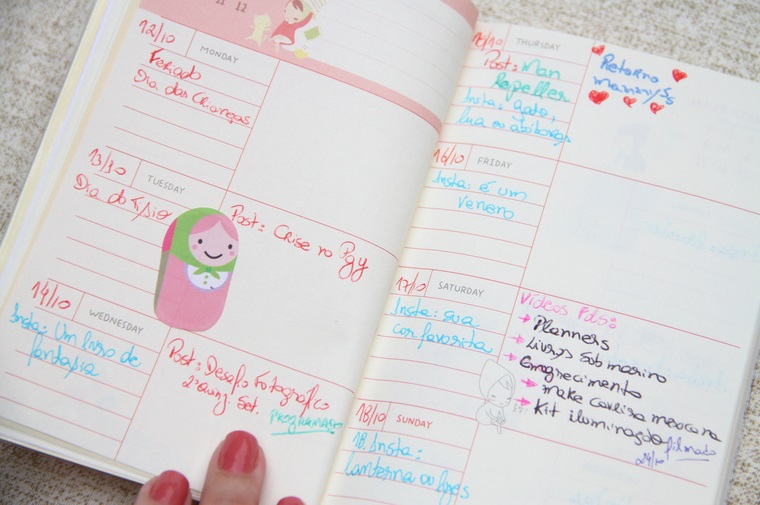 11 12
12/10 MONDAY
Feriado
Dia das Crianças
13/10 TUESDAY
Dia do
Post: Crise no
14/10 WEDNESDAY
Insta: Um livro de
fantasia
Post: Desafio Fotográfico
2ª quinz. Set.
Programado
15/10 THURSDAY
Post: Man
Repeller
Insta: gato,
lua ou
Retorno
16/10 FRIDAY
Insta: é um
veneno
17/10 SATURDAY
Insta: sua
cor favorita
Vídeos Pdls:
Planners
Livros Submarino
Emagrecimento
make caveira mexicana
Kit iluminação filmado
18/10 SUNDAY
18. Insta:
lanterna ou luzes